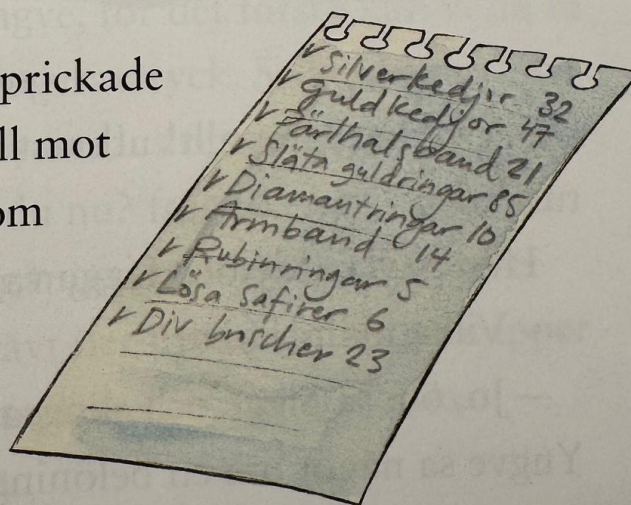 prickade
ll mot
om
✓ Silverkedjor 32
✓ Guldkedjor 47
✓ Pärlhalsband 21
✓ Släta guldringar 85
✓ Diamantringar 10
✓ Armband 14
✓ Rubinringar 5
✓ Lösa safirer 6
✓ Div broscher 23
– Jo, 
Yngve sa